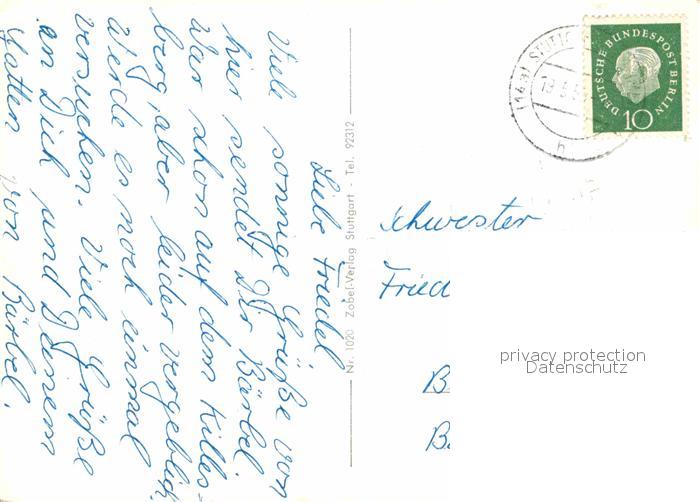 Liebe Friedel
Viele sonnige Grüße von
hier sendet Dir Bärbel.
War schon auf dem Killes-
berg, aber leider vergeblich.
Werde es noch einmal
versuchen. Viele Grüße
an Dich und Deinem
Gatten von Bärbel.
Nr. 1020 Zobel-Verlag Stuttgart - Tel. 92312
(14a) STUTTG
19.5.5
h
DEUTSCHE BUNDESPOST BERLIN
10
Schwester
Fried
B.
B.
privacy protection
Datenschutz